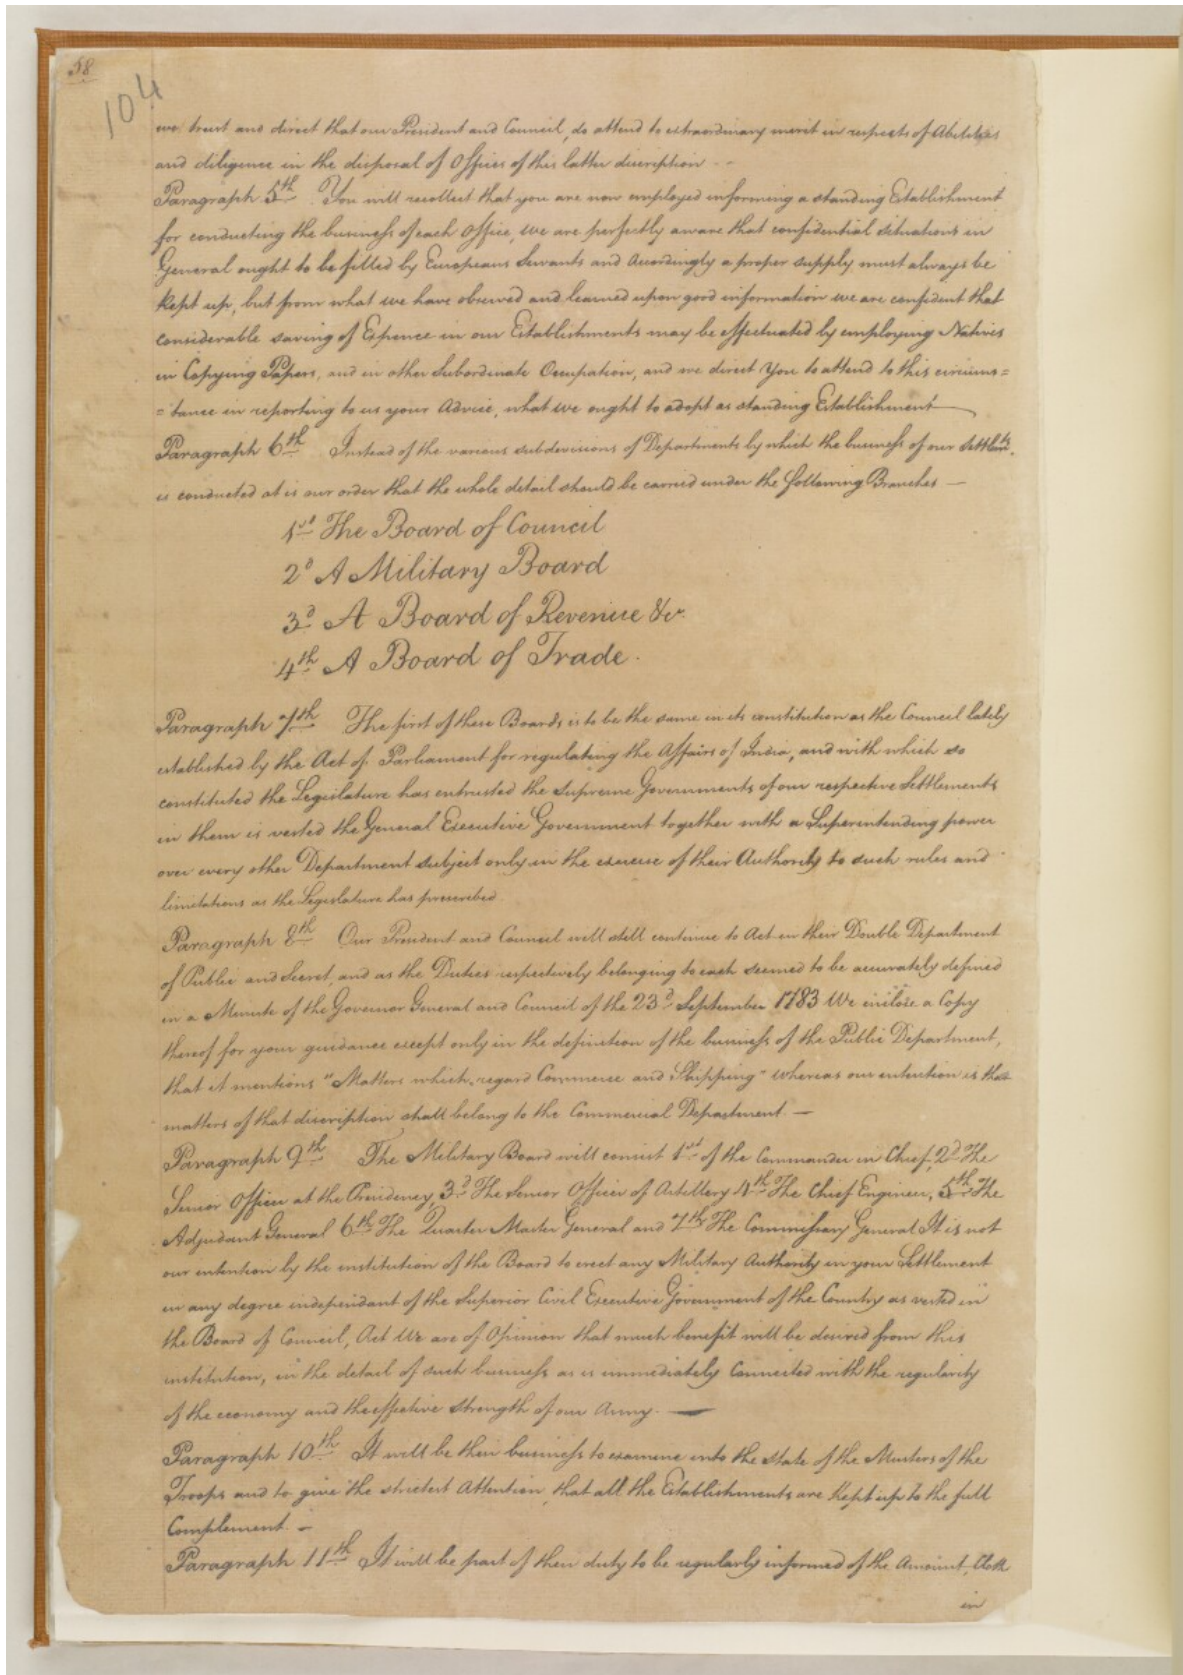 58
104
we trust and direct that our President and Council, do attend to extraordinary merit in respects of Abilities
and diligence in the disposal of Offices of this latter discription - -
Paragraph 5th You will recollect that you are now employed informing a standing Establishment
for conducting the business of each Office, we are perfectly aware that confidential situations in
General ought to be filled by Europeans Servants and Accordingly a proper supply must always be
Kept up, but from what we have observed and learned upon good information we are confident that
considerable saving of Expence in our Establishments may be effectuated by employing Natives
in Copying Papers, and in other Subordinate Occupation, and we direct You to attend to this circums=
=tance in reporting to us your Advice, what we ought to adopt as standing Establishment
Paragraph 6th Instead of the various subdivisions of Departments by which the business of our Settlemts.
is conducted at is our order that the whole detail should be carried under the following Branches —
1st The Board of Council
2d A Military Board
3d A Board of Revenue &c.
4th A Board of Trade.
Paragraph 7th The first of these Boards is to be the same in its constitution as the Council lately
established by the Act of Parliament for regulating the Affairs of India, and with which so
constituted the Legislature has entrusted the Supreme Governments of our respective Settlements
in them is vested the General Executive Government together with a Superintending power
over every other Department subject only in the exercise of their Authority to such rules and
limitations as the Legislature has prescribed
Paragraph 8th Our President and Council will still continue to Act in their Double Department
of Public and Secret, and as the Duties respectively belonging to each seemed to be accurately defined
in a Minute of the Governor General and Council of the 23d September 1783 We inclose a Copy
thereof for your guidance except only in the definition of the business of the Public Department,
that it mentions "Matters which regard Commerce and Shipping" whereas our intention is that
matters of that discription shall belong to the Commercial Department. —
Paragraph 9th The Military Board will consist 1st of the Commander in Chief, 2d The
Senior Officer at the Presidency, 3d The Senior Officer of Artillery 4th The Chief Engineer, 5th The
Adjudant General 6th The Quarter Master General and 7th The Commissary General It is not
our intention by the institution of the Board to erect any Military Authority in your Settlement
in any degree independant of the Superior Civil Executive Government of the Country as vested in
the Board of Council, Act We are of Opinion that much benefit will be desired from this
institution, in the detail of such business as is immediately Connected with the regularity
of the economy and the effective strength of our Army. —
Paragraph 10th It will be their business to examine into the state of the Musters of the
Troops and to give the strictest Attention, that all the Establishments are Kept up to the full
Complement. —
Paragraph 11th It will be part of their duty to be regularly informed of the Amount, Cloth
in